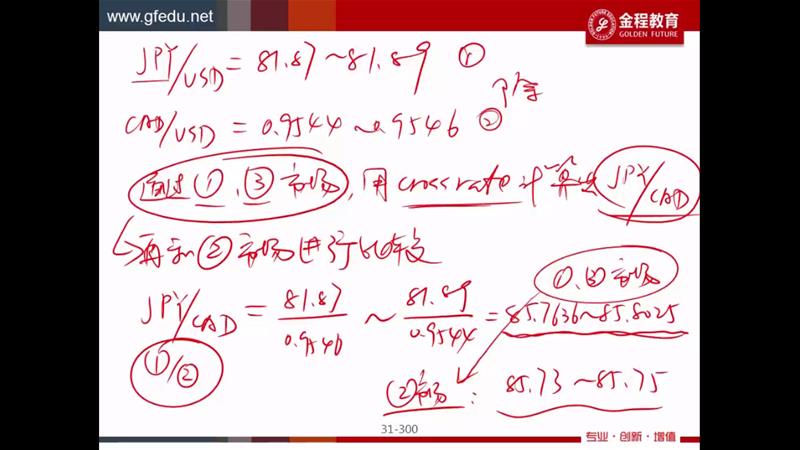 www.gfedu.net
金程教育
GOLDEN FUTURE
JPY/USD = 81.87 ~ 81.89 ①
CAD/USD = 0.9544 ~ 0.9546 ②
通过①、③市场,用cross rate计算出一个JPY/CAD
再和②市场进行比较
①、③市场
JPY/CAD = 81.87/0.9546 ~ 81.89/0.9544 = 85.7636~85.8025
①/②
②市场: 85.73 ~ 85.75
31-300
专业·创新·增值